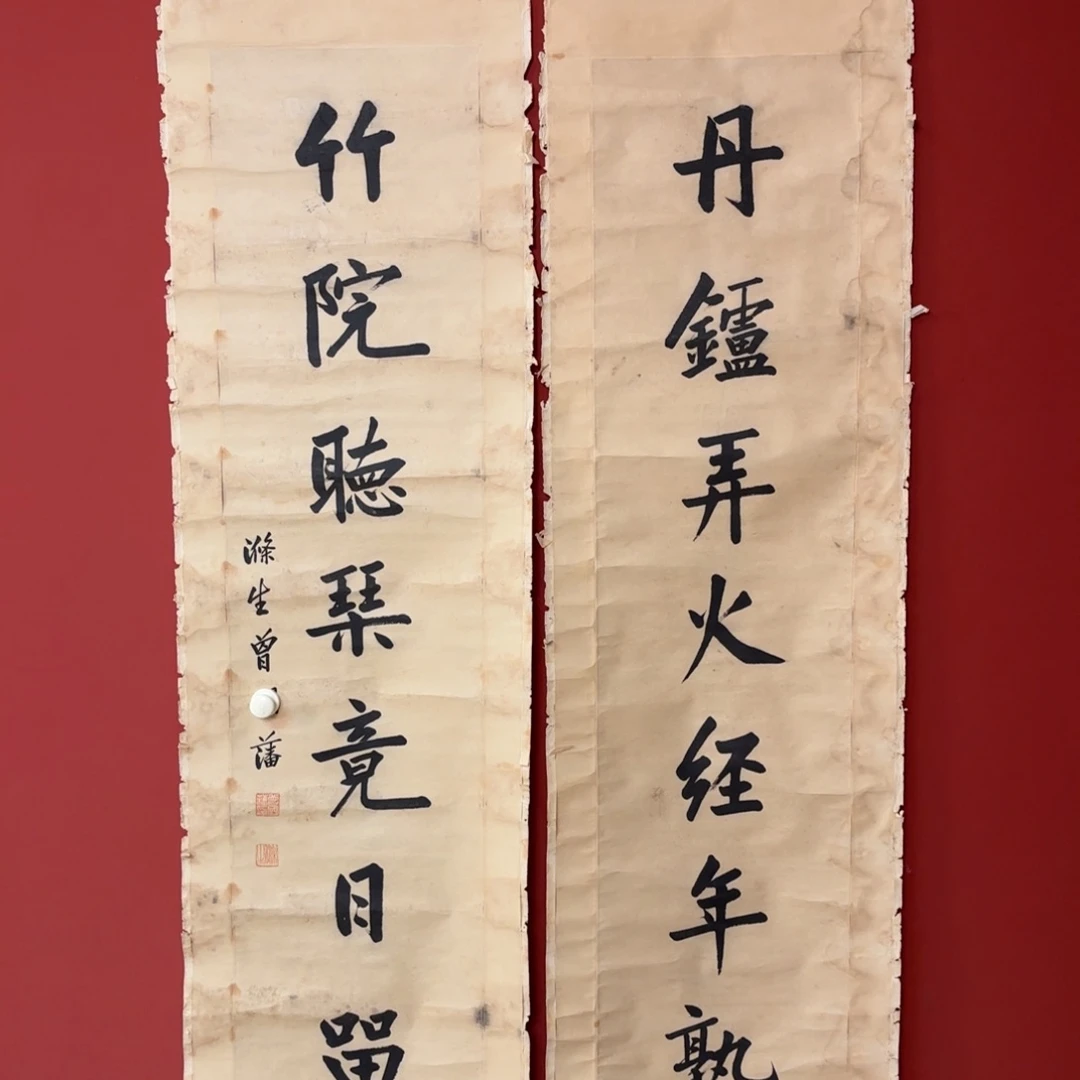 丹鑪弄火経年熟
竹院聴琹竟日㽞
滌生曾藩